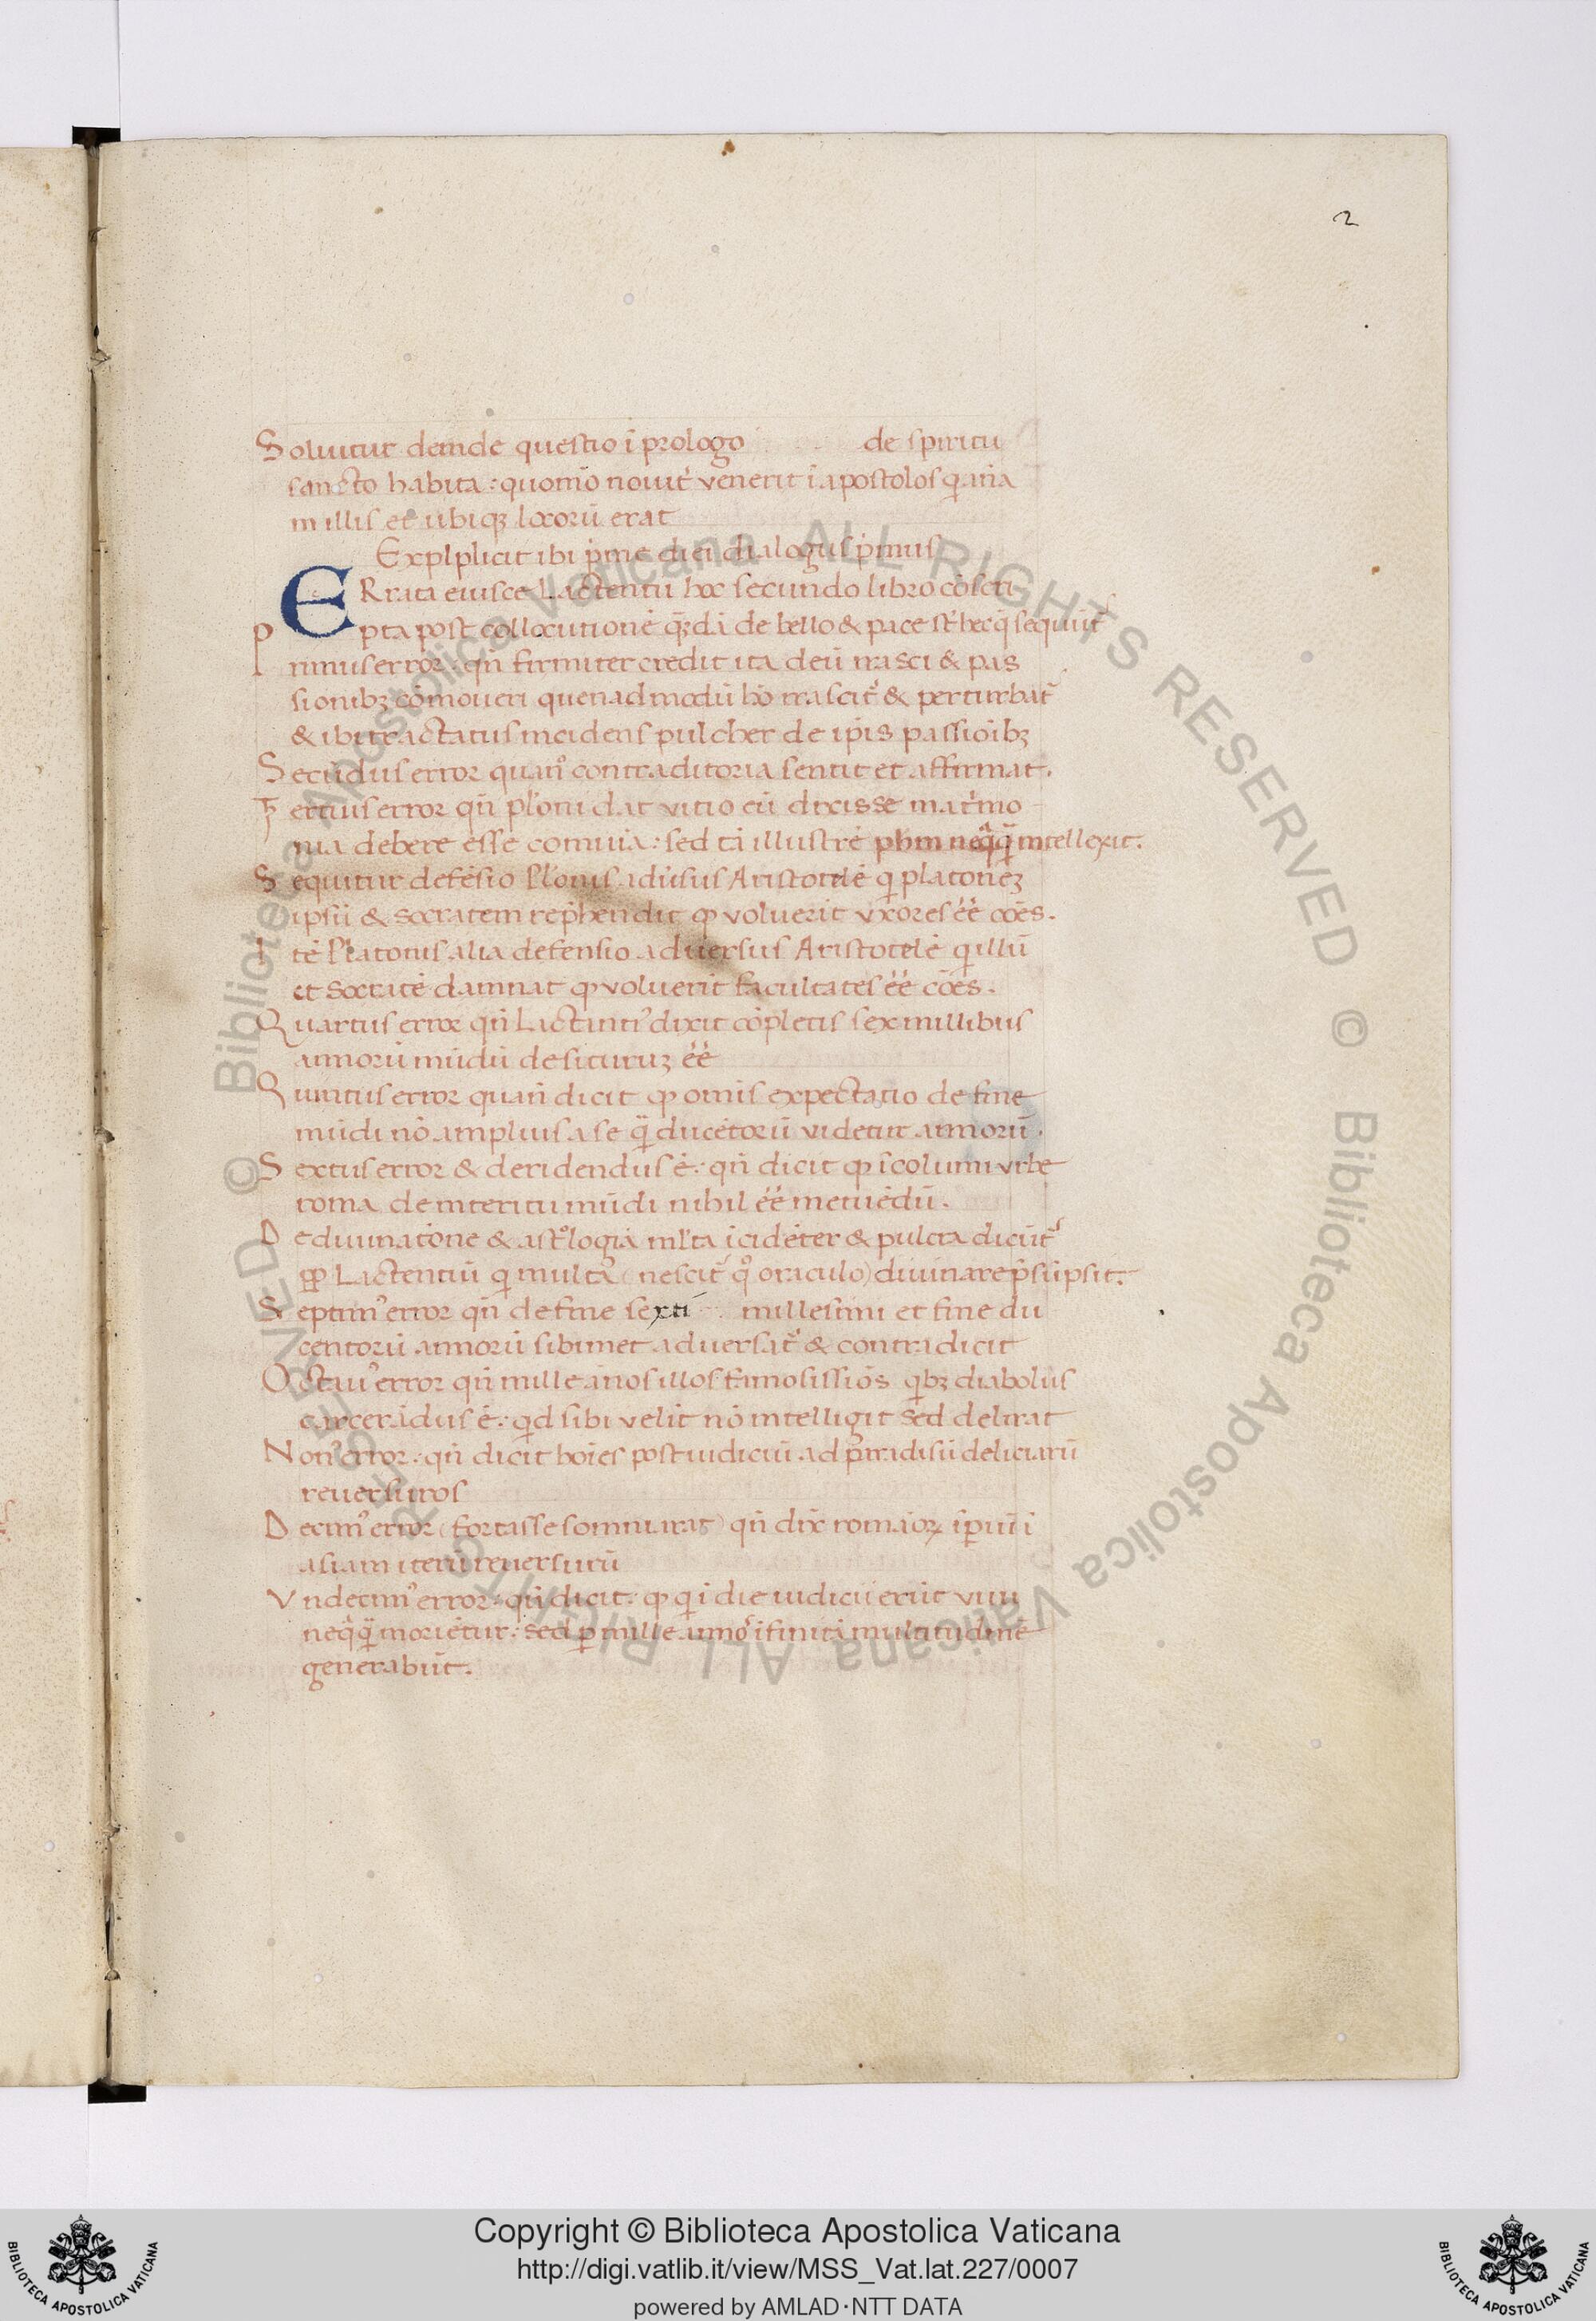 2
Soluitur deinde questio ĩ prologo de spiritu
sancto habita: quomõ nouit̉ venerit ĩ apostolos q̃ ania
in illis et ubiqȝ locorũ erat
Explplicit ibi p̃me diei dialogus p̃mus
ERrata eiusce Lactentii hoc secundo libro cõscri
pta post collocutionẽ q̃ȝdã de bello & pace st̃ hec q̃ sequũt᷑
Primus error: qñ firmiter credit ita deũ irasci & pas
sionibȝ cõmoueri quenadmodũ hõ irascit᷑ & perturbat᷑
& ibi tractatus incidens pulcher de ip̃is passioĩbȝ
Secũdus error quañ contraditoria sentit et affirmat.
Tertius error qñ pl'oni dat vitio eũ dixisse mat'imo
nia debere esse comuia: sed tã illustrẽ phm neq̃q̃ intellexit.
Sequitur defẽsio Pl'onis aduersus Aristotelẽ q̃ platonẽȝ
ipsũ & socratem rep̃hendit ꝙ voluerit vxores ẽẽ cõẽs.
Itẽ Platonis alia defensio aduersus Aristotelẽ q̃ illũ
et Socratẽ damnat ꝙ voluerit facultates ẽẽ cões.
Quartus error qñ Lactanti᷒ dixit cõpletis sex millibus
annorũ mũdũ desituruȝ ẽẽ
Quintus error quañ dicit ꝙ omis expectatio de fine
mũdi nõ amplius a se q̃ ducẽtorũ videtur annorũ.
Sextus error & deridendus ẽ: qñ dicit ꝙ ĩcolumi vrbe
roma de interitu mũdi nihil ẽẽ metuẽdũ.
De diuinatione & ast°logia ml'ta ĩcidẽter & pulcra dicũt᷑
ꝓp Lactentiũ q̃ multa (nescit᷑ q° oraculo) diuinare p̃sũpsit.
Septim᷒ error qñ de fine sexti millesimi et fine du
centorũ annorũ sibimet aduersat᷑ & contradicit
Octau᷒ error qñ mille ãnos illos famosissiõs qbȝ diabolus
carcerãdus ẽ: qd sibi velit nõ intelligit sed delirat
Non᷒ error: qñ dicit hoĩes post iudiciũ ad paradisũ deliciarũ
reuersuros
Decim᷒ error (fortasse somniarat) qñ dix̃ romãoꝝ ĩpiũ ĩ
asiam iterũ reuersurũ
Vndecim᷒ error: qñ dicit: ꝙ q̃ ĩ die iudicii erũt viui
neq̃q̃ moriẽtur: sed ꝑ mille anno᷒ ĩfinitã multitudinẽ
generabũt.
Copyright © Biblioteca Apostolica Vaticana
http://digi.vatlib.it/view/MSS_Vat.lat.227/0007
powered by AMLAD·NTT DATA
BIBLIOTECA APOSTOLICA VATICANA
BIBLIOTECA APOSTOLICA VATICANA
© Biblioteca Apostolica Vaticana ALL RIGHTS RESERVED © Biblioteca Apostolica Vaticana ALL RIGHTS RESERVED